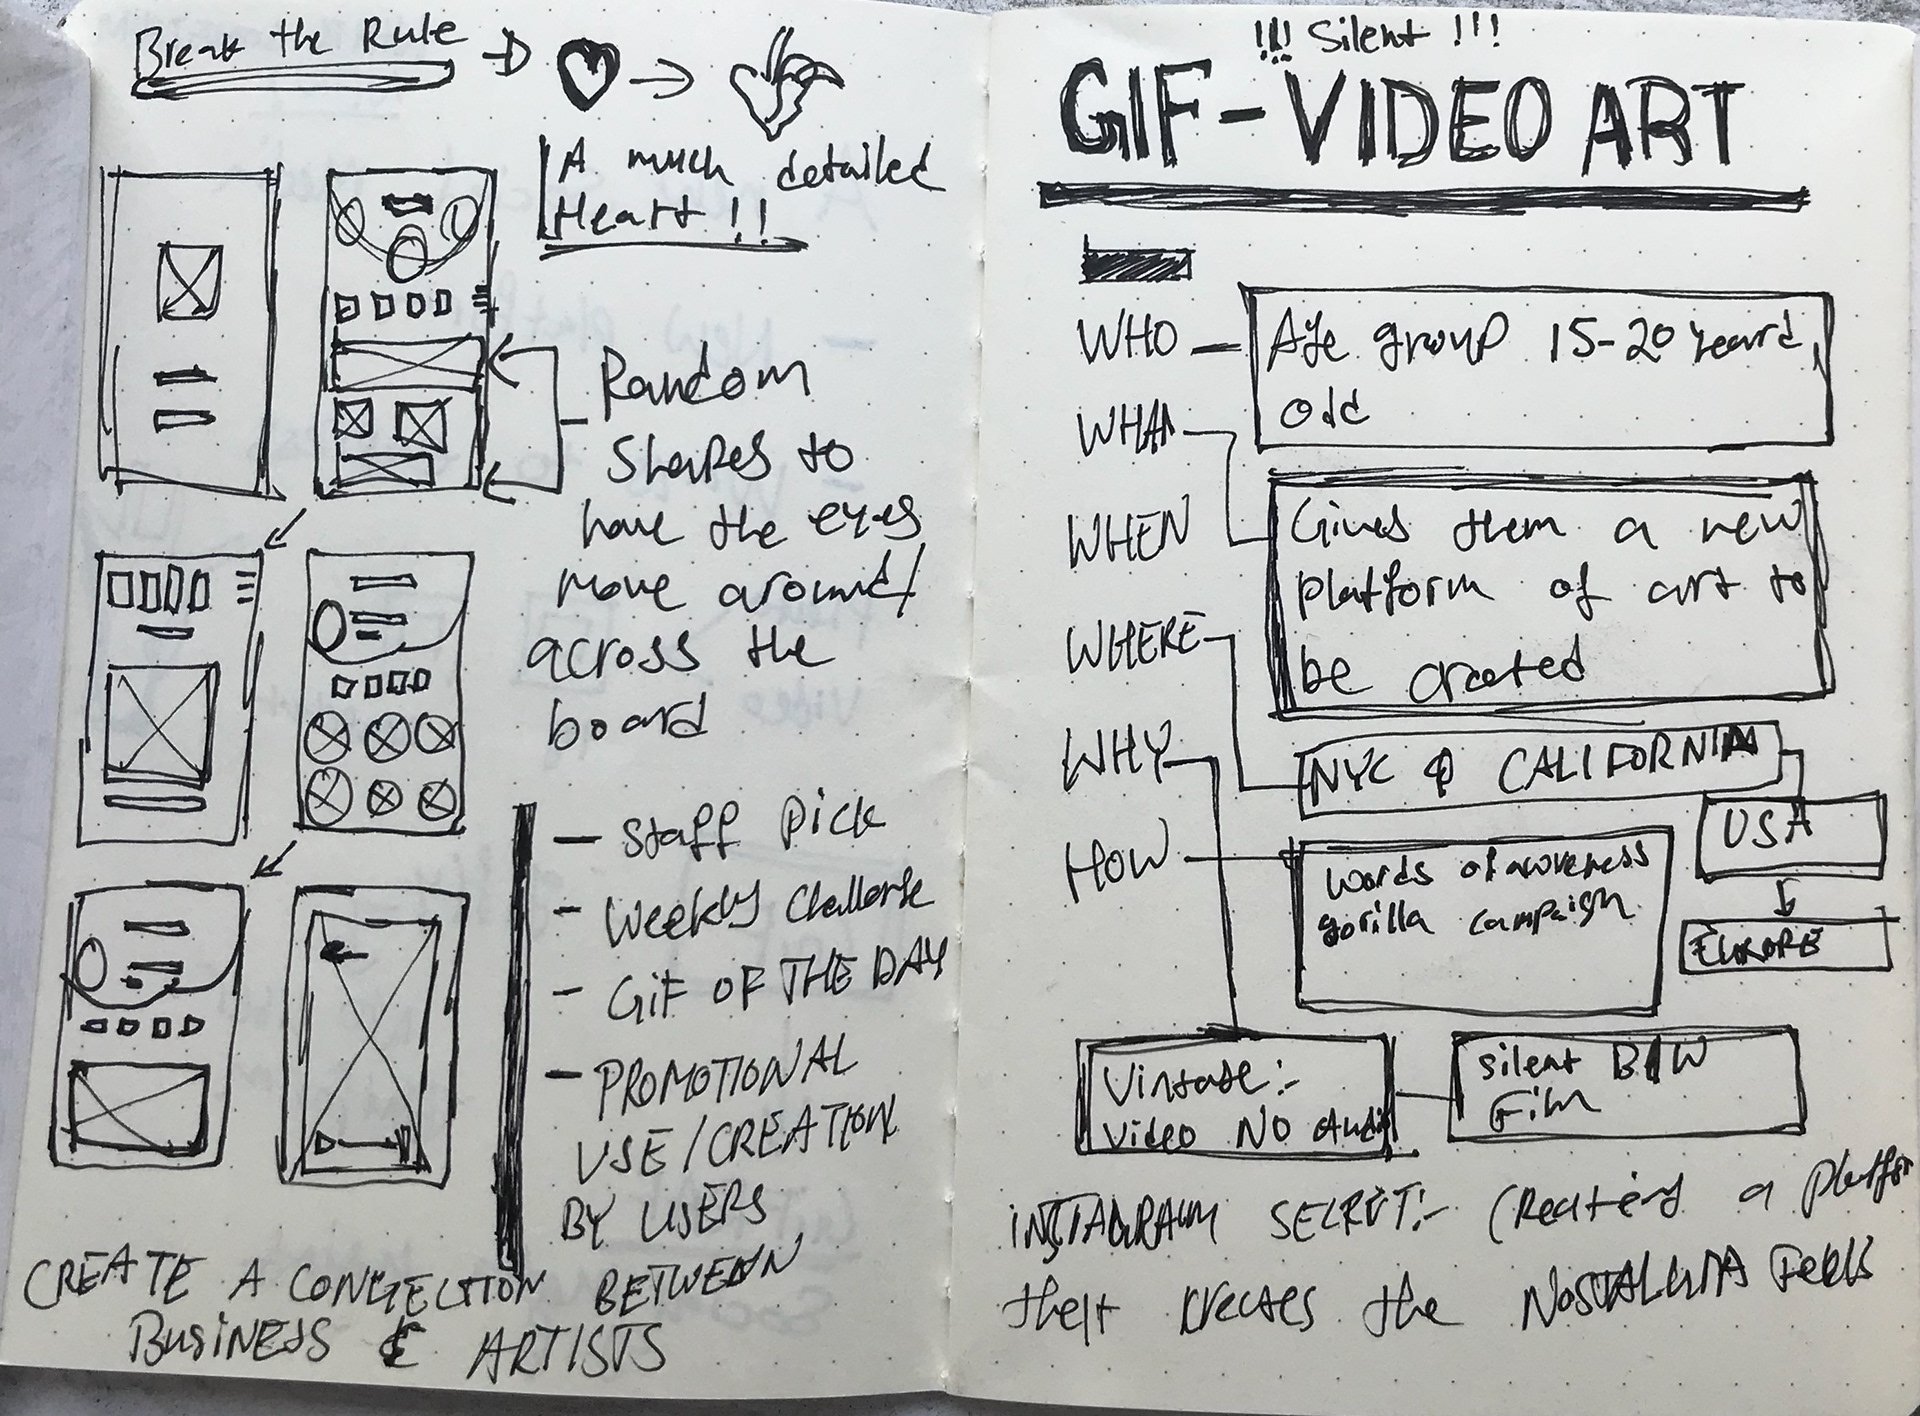 Break the Rule
A much detailed
Heart !!
Random
shapes to
have the eyes
move around/
across the
board
- Staff Pick
- Weekly Challenge
- GiF OF THE DAY
- PROMOTIONAL
USE/CREATION
BY USERS
CREATE A CONNECTION BETWEEN
BUSiNESS & ARTISTS
!!! Silent !!!
GIF-VIDEO ART
WHO - Age group 15-20 years
old
WHAT
Gives them a new
platform of art to
be created
WHEN
WHERE
NYC & CALIFORNIA
USA
EUROPE
WHY
HOW
words of awareness
gorilla campaign
Vintage:-
Video NO Audio
silent B/W
Film
iNSTAGRAM SECRET:- Creating a platform
that creates the NOSTALGIA Feels